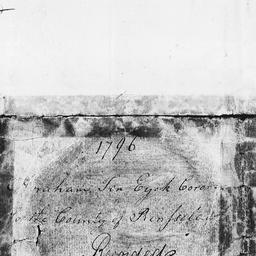 1796
Abraham Ten Eyck Coroner
to the County of Rensselaer
Recorded